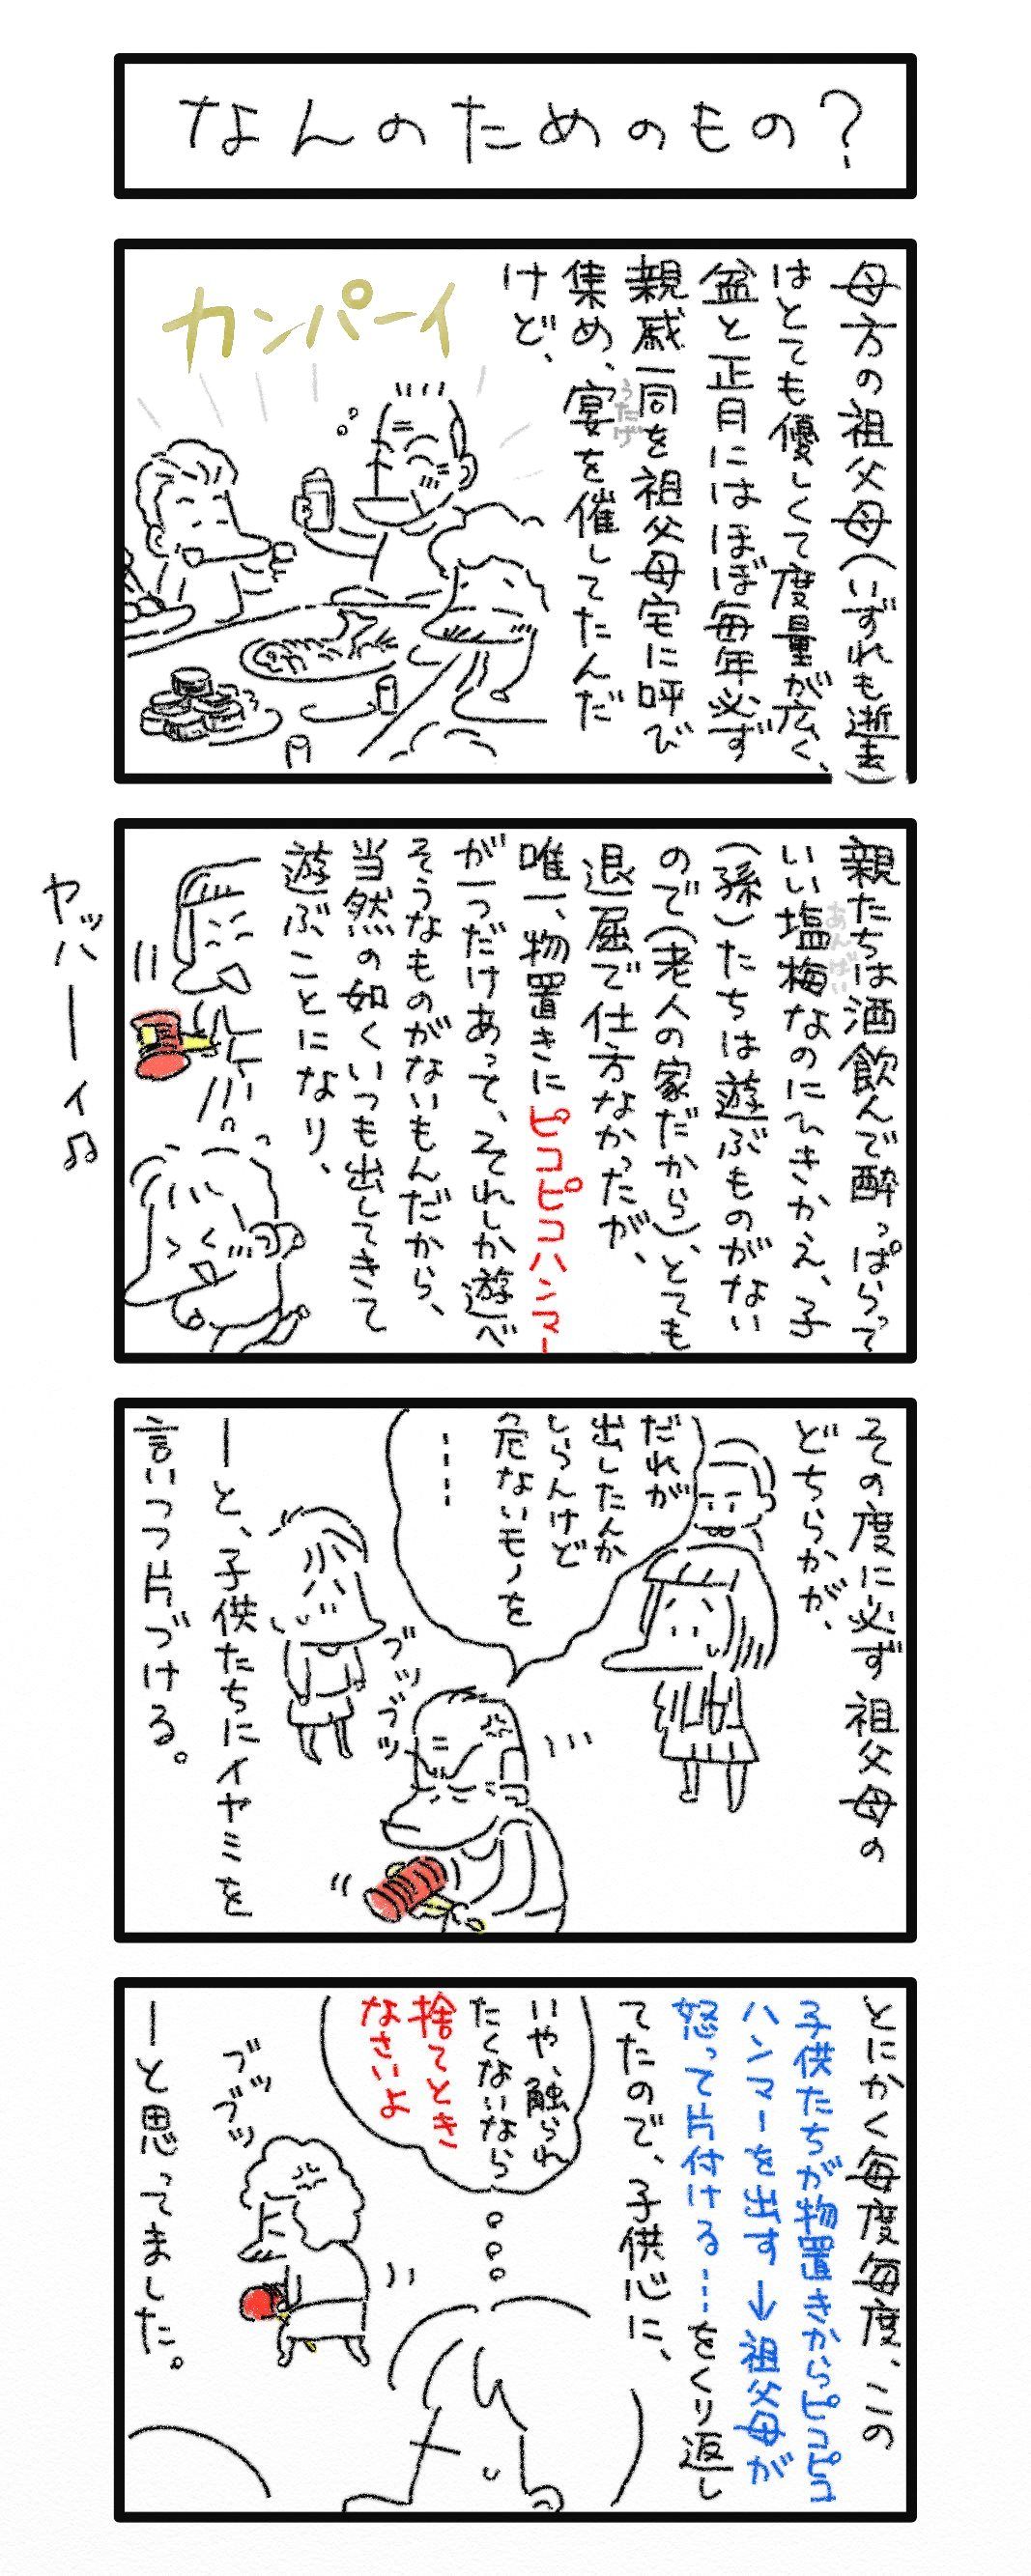 なんのためのもの？
母方の祖父母(いずれも逝去)
はとても優しくて度量が広く、
盆と正月にはほぼ毎年必ず
親戚一同を祖父母宅に呼び
うたげ
集め、宴を催してたんだ
けど、
カンパーイ
親たちは酒飲んで酔っぱらって
いい塩梅なのにひきかえ、子
あんばい
(孫)たちは遊ぶものがない
ので(老人の家だから)、とても
退屈で仕方なかったが、
唯一、物置きにピコピコハンマー
が一つだけあって、それしか遊べ
そうなものがないもんだから、
当然の如くいつも出してきて
遊ぶことになり、
ヤッハーイ♫
その度に必ず祖父母の
どちらかが、
だれが
出したんか
しらんけど
危ないモノを
……
ブツ
ブツ
ーと、子供たちにイヤミを
言いつつ片づける。
とにかく毎度毎度、この
子供たちが物置きからピコピコ
ハンマーを出す→祖父母が
怒って片付ける…をくり返し
てたので、子供心に、
いや、触られ
たくないなら
捨てとき
なさいよ
ブツ
ブツ
ーと思ってました。